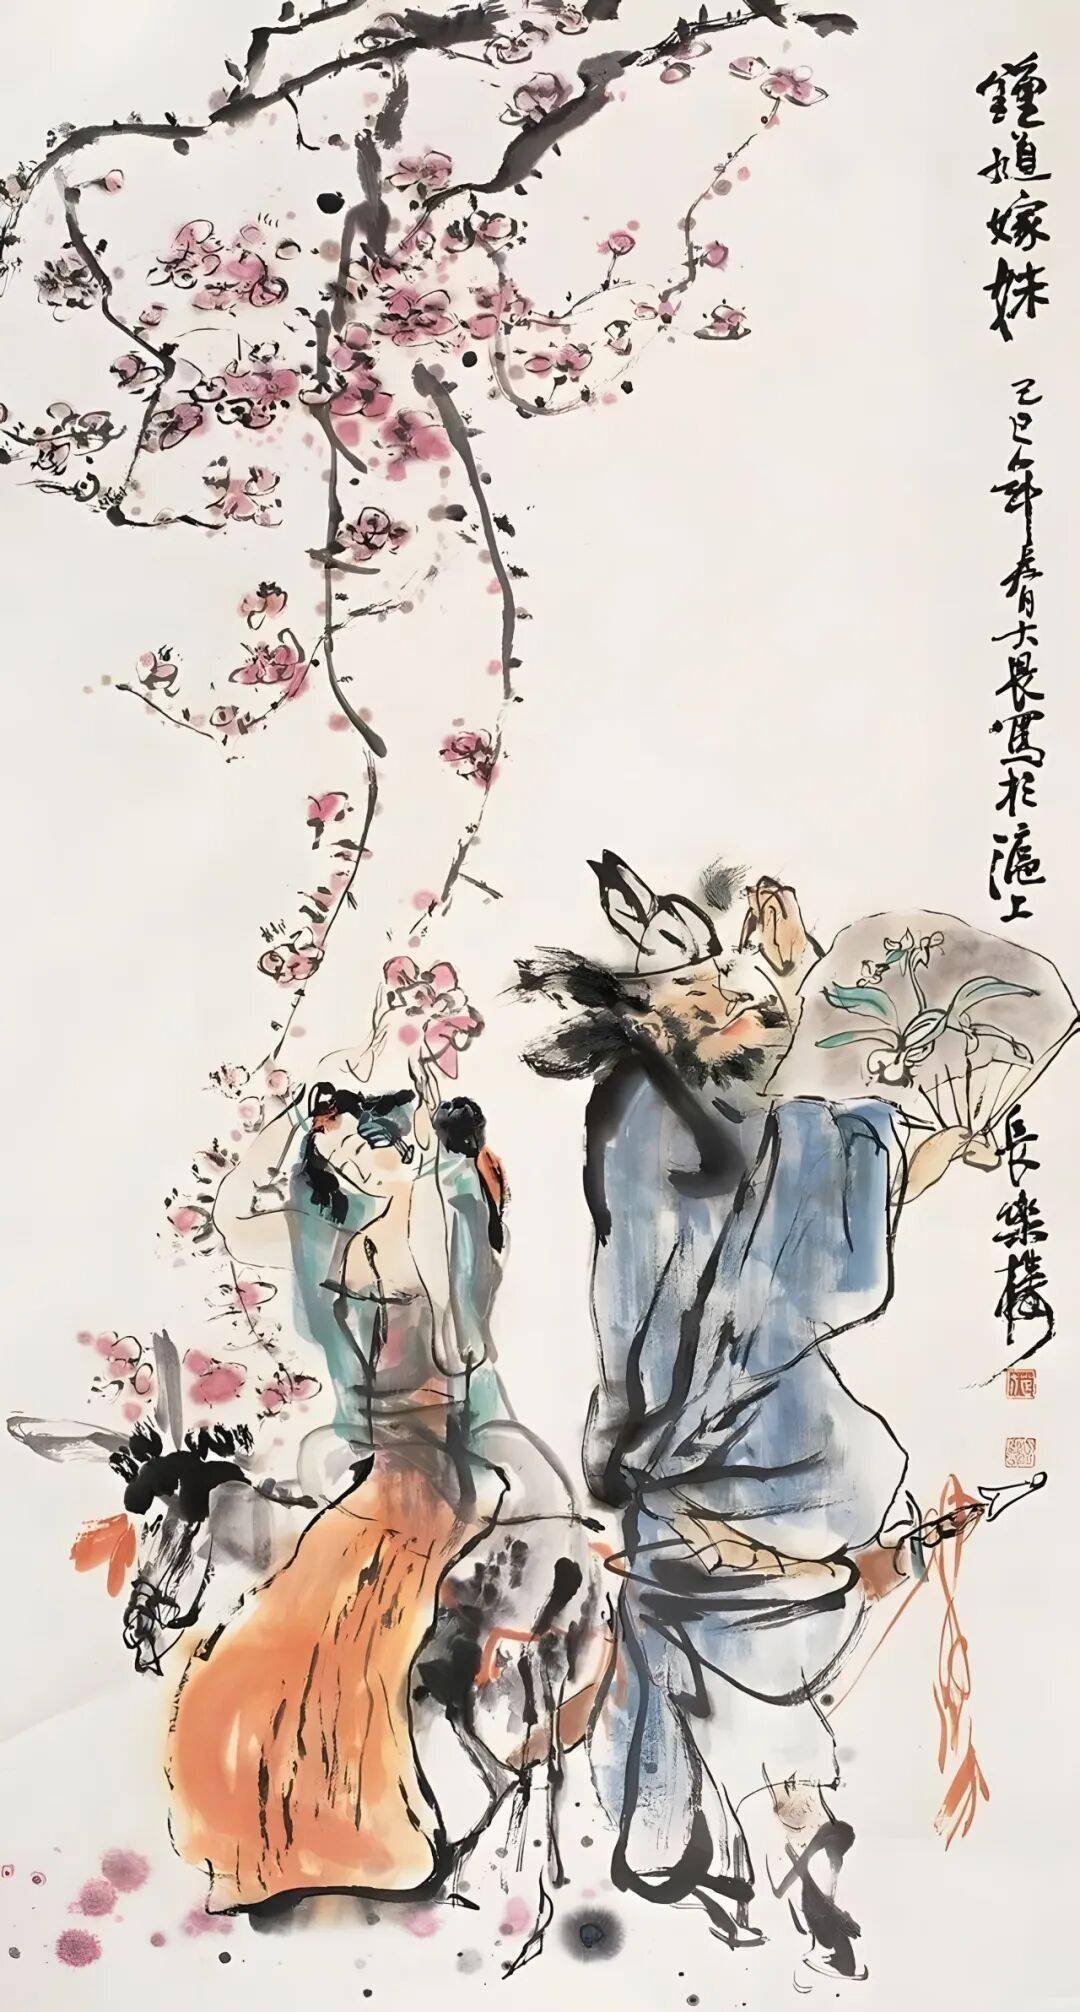 鍾馗嫁妹 己巳年春月大畏寫於滬上 長樂樓